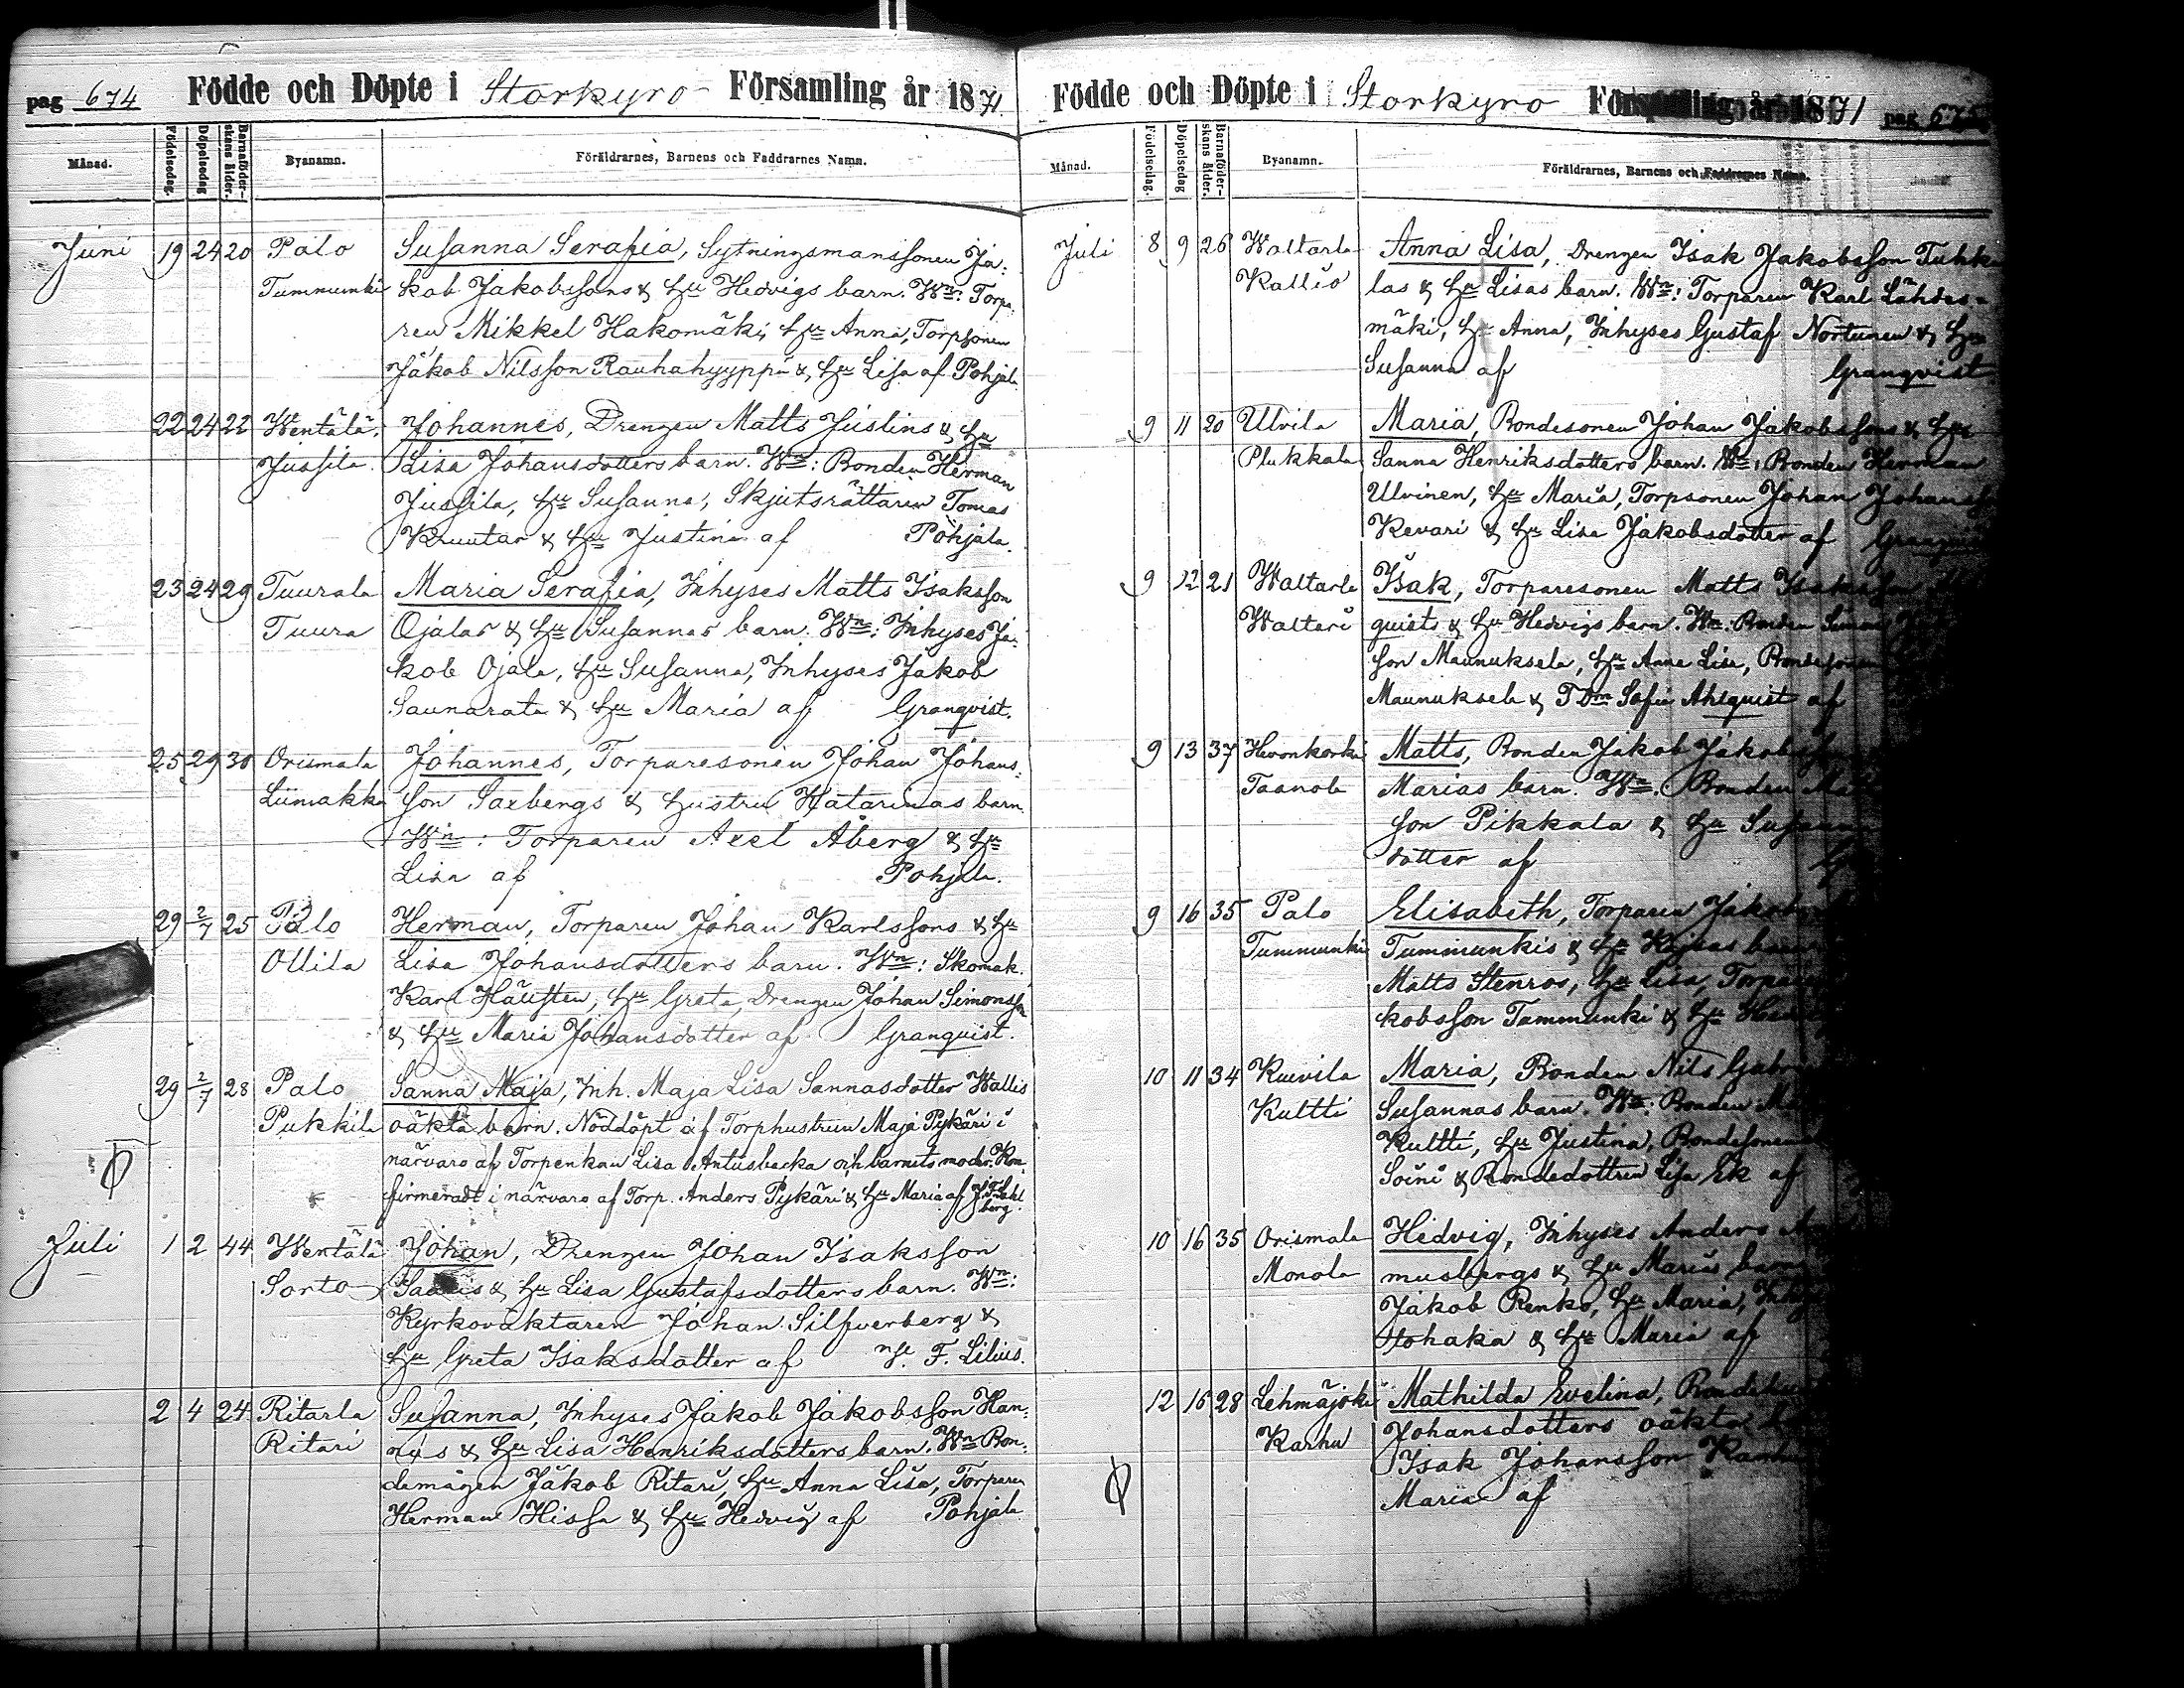 pag 674 Födde och Döpte i Storkyro Församling år 1871.
Månad. Födelsedag. Döpelsedag Barnaföder-skans ålder. Byanamn. Föräldrarnes, Barnens och Faddrarnes Namn.
Juni 19 24 20 Palo Susanna Serafia, Sytningsmanssonen Ja-
Tummunki kob Jakobssons & Hu Hedvigs barn. Wn: Torpa-
ren Mikkel Hakomäki, Hu Anna, Torpsonen
Jakob Nilsson Rauhahyyppä &, Hu Lisa af Pohjala
22 24 22 Wentälä Johannes, Drengen Matts Juslins & Hu
Jussila Lisa Johansdotters barn. Wn: Bonden Herman
Jussila, Hu Susanna, Skjutsrättaren Tomas
Kruutar & Hu Justina af Pohjala.
23 24 29 Tuurala Maria Serafia, Inhyses Matts Isaksson
Tuura Ojalas & Hu Susannas barn. Wn: Inhyses Ja-
kob Ojala, Hu Susanna, Inhyses Jakob
Saunarata & Hu Maria af Granqvist.
25 29 30 Orismala Johannes, Torparesonen Johan Johans-
Liimakka son Saxbergs & Hustru Katarinas barn
Wn: Torparen Axel Åberg & Hu
Lisa af Pohjala.
29 2/7 25 Palo Herman, Torparen Johan Karlssons & Hu
Ollila Lisa Johansdotters barn. Wn: Skomak.
Karl Häusten, Hu Greta, Drengen Johan Simonsson
& Hu Maria Johansdotter af Granqvist.
29 2/7 28 Palo Sanna Maja, Inh. Maja Lisa Sannasdotter Wallis
Pukkila oäkta barn. Nöddöpt af Torphustrun Maja Pykäri i
närvaro af Torpenkan Lisa Antusbacka och barnets moder. Kon-
firmeradt i närvaro af Torp. Anders Pykäri & Hu Maria af
Juli 1 2 44 Wentälä Johan, Drengen Johan Isaksson
Sorto & Hu Lisa Gustafsdotters barn. Wn:
Kyrkovaktaren Johan Silfverberg &
Hu Greta Isaksdotter af F. Lilius.
2 4 24 Ritarla Susanna, Inhyses Jakob Jakobsson Han-
Ritari nys & Hu Lisa Henriksdotters barn. Wn Bon-
demågen Jakob Ritari, Hu Anna Lisa, Torparen
Herman Hissa & Hu Hedvig af Pohjala
Födde och Döpte i Storkyro Församling år 1871 pag 675
Månad. Födelsedag. Döpelsedag Barnaföder-skans ålder. Byanamn. Föräldrarnes, Barnens och Faddrarnes Namn.
Juli 8 9 26 Waltarla Anna Lisa, Drengen Isak Jakobsson Tuhka
Kallio las & Hu Lisas barn. Wn: Torparen Karl Lähdes-
mäki, Hu Anna, Inhyses Gustaf Nortunen & Hu
Susanna af Granqvist
9 11 20 Ulvila Maria, Bondesonen Johan Jakobssons & Hu
Plukkala Sanna Henriksdotters barn. Wn: Bonden Herman
Ulvinen, Hu Maria, Torpsonen Johan
Kevari & Hu Lisa Jakobsdotter af
9 12 21 Waltarla Isak, Torparesonen Matts Isaksson
Waltari quists & Hu Hedvigs barn. Wn. Bonden
son Maunuksela, Hu Anna Lisa,
Maunuksela & Sofia Ahlquist af
9 13 37 Hevonkorki Matts, Bonden Jakob
Taanola Marias barn. Wn. Bonden
son Pikkala & Hu
dotter af
9 16 35 Palo Elisabeth, Torparen
Tummunki Tummunkis & Hu Kajsas
Matts Stenros, Hu Lisa,
kobsson Tammunki & Hu
10 11 34 Kuivila Maria, Bonden Nils
Kultti Susannas barn. Wn: Bonden
Kultti, Hu Justina, Bondesonen
Soini & Bondedottren Lisa Ek af
10 16 35 Orismala Hedvig, Inhyses Anders
Monola musbergs & Hu Marias barn
Jakob Renko, Hu Maria,
tohaka & Hu Maria af
12 16 28 Lehmäjoki Mathilda Evelina,
Karhu Johansdotters oäkta
Isak Johansson
Maria af